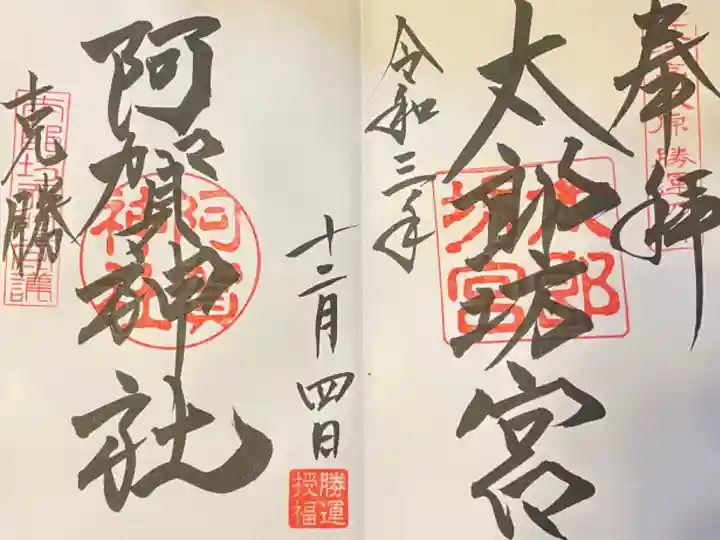 奉拝
太郎坊宮
太郎坊宮
令和三年
十二月四日
勝運
授福
阿賀神社
阿賀
神社
克勝